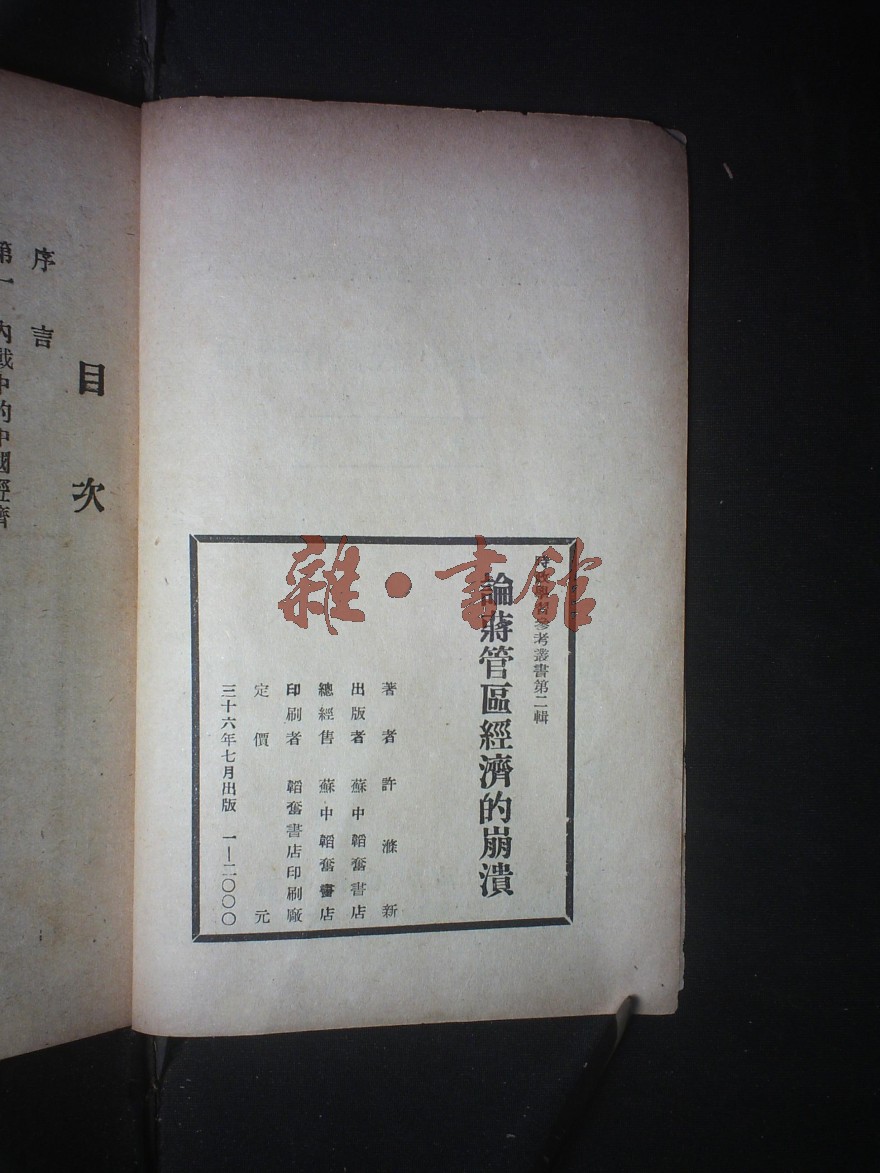 參考叢書第二輯
論蔣管區經濟的崩潰
著者 許滌新
出版者 蘇中韜奮書店
總經售 蘇中韜奮書店
印刷者 韜奮書店印刷廠
定價 元
三十六年七月出版 一—二〇〇〇
雜·書館
目次
序言
第一 內戰中的中國經濟